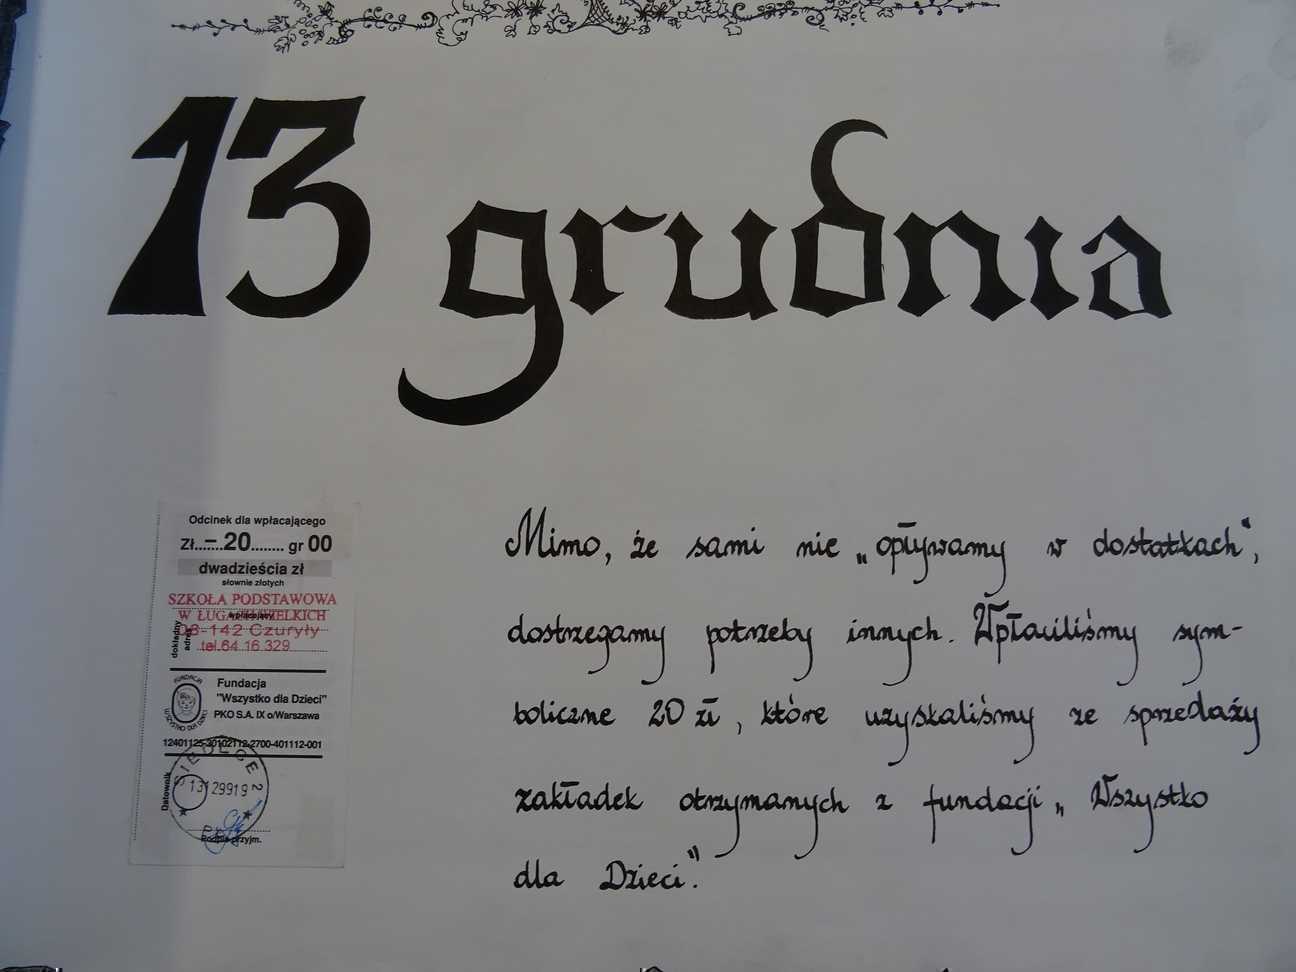 13 grudnia
Odcinek dla wpłacającego
Zł.......–20........ gr 00
dwadzieścia zł
słownie złotych
SZKOŁA PODSTAWOWA
wpłacający
W ŁUGACH WIELKICH
08-142 Czuryły
tel.64 16 329
dokładny
adres
FUNDACJA
WSZYSTKO DLA DZIECI
Fundacja
"Wszystko dla Dzieci"
PKO S.A. IX o/Warszawa
12401125-30102112-2700-401112-001
Datownik
SIEDLCE 2
13129919
Podpis przyjm.
Mimo, że sami nie „opływamy w dostatkach",
dostrzegamy potrzeby innych. Wpłaciliśmy sym-
boliczne 20 zł, które uzyskaliśmy ze sprzedaży
zakładek otrzymanych z fundacji „Wszystko
dla Dzieci".